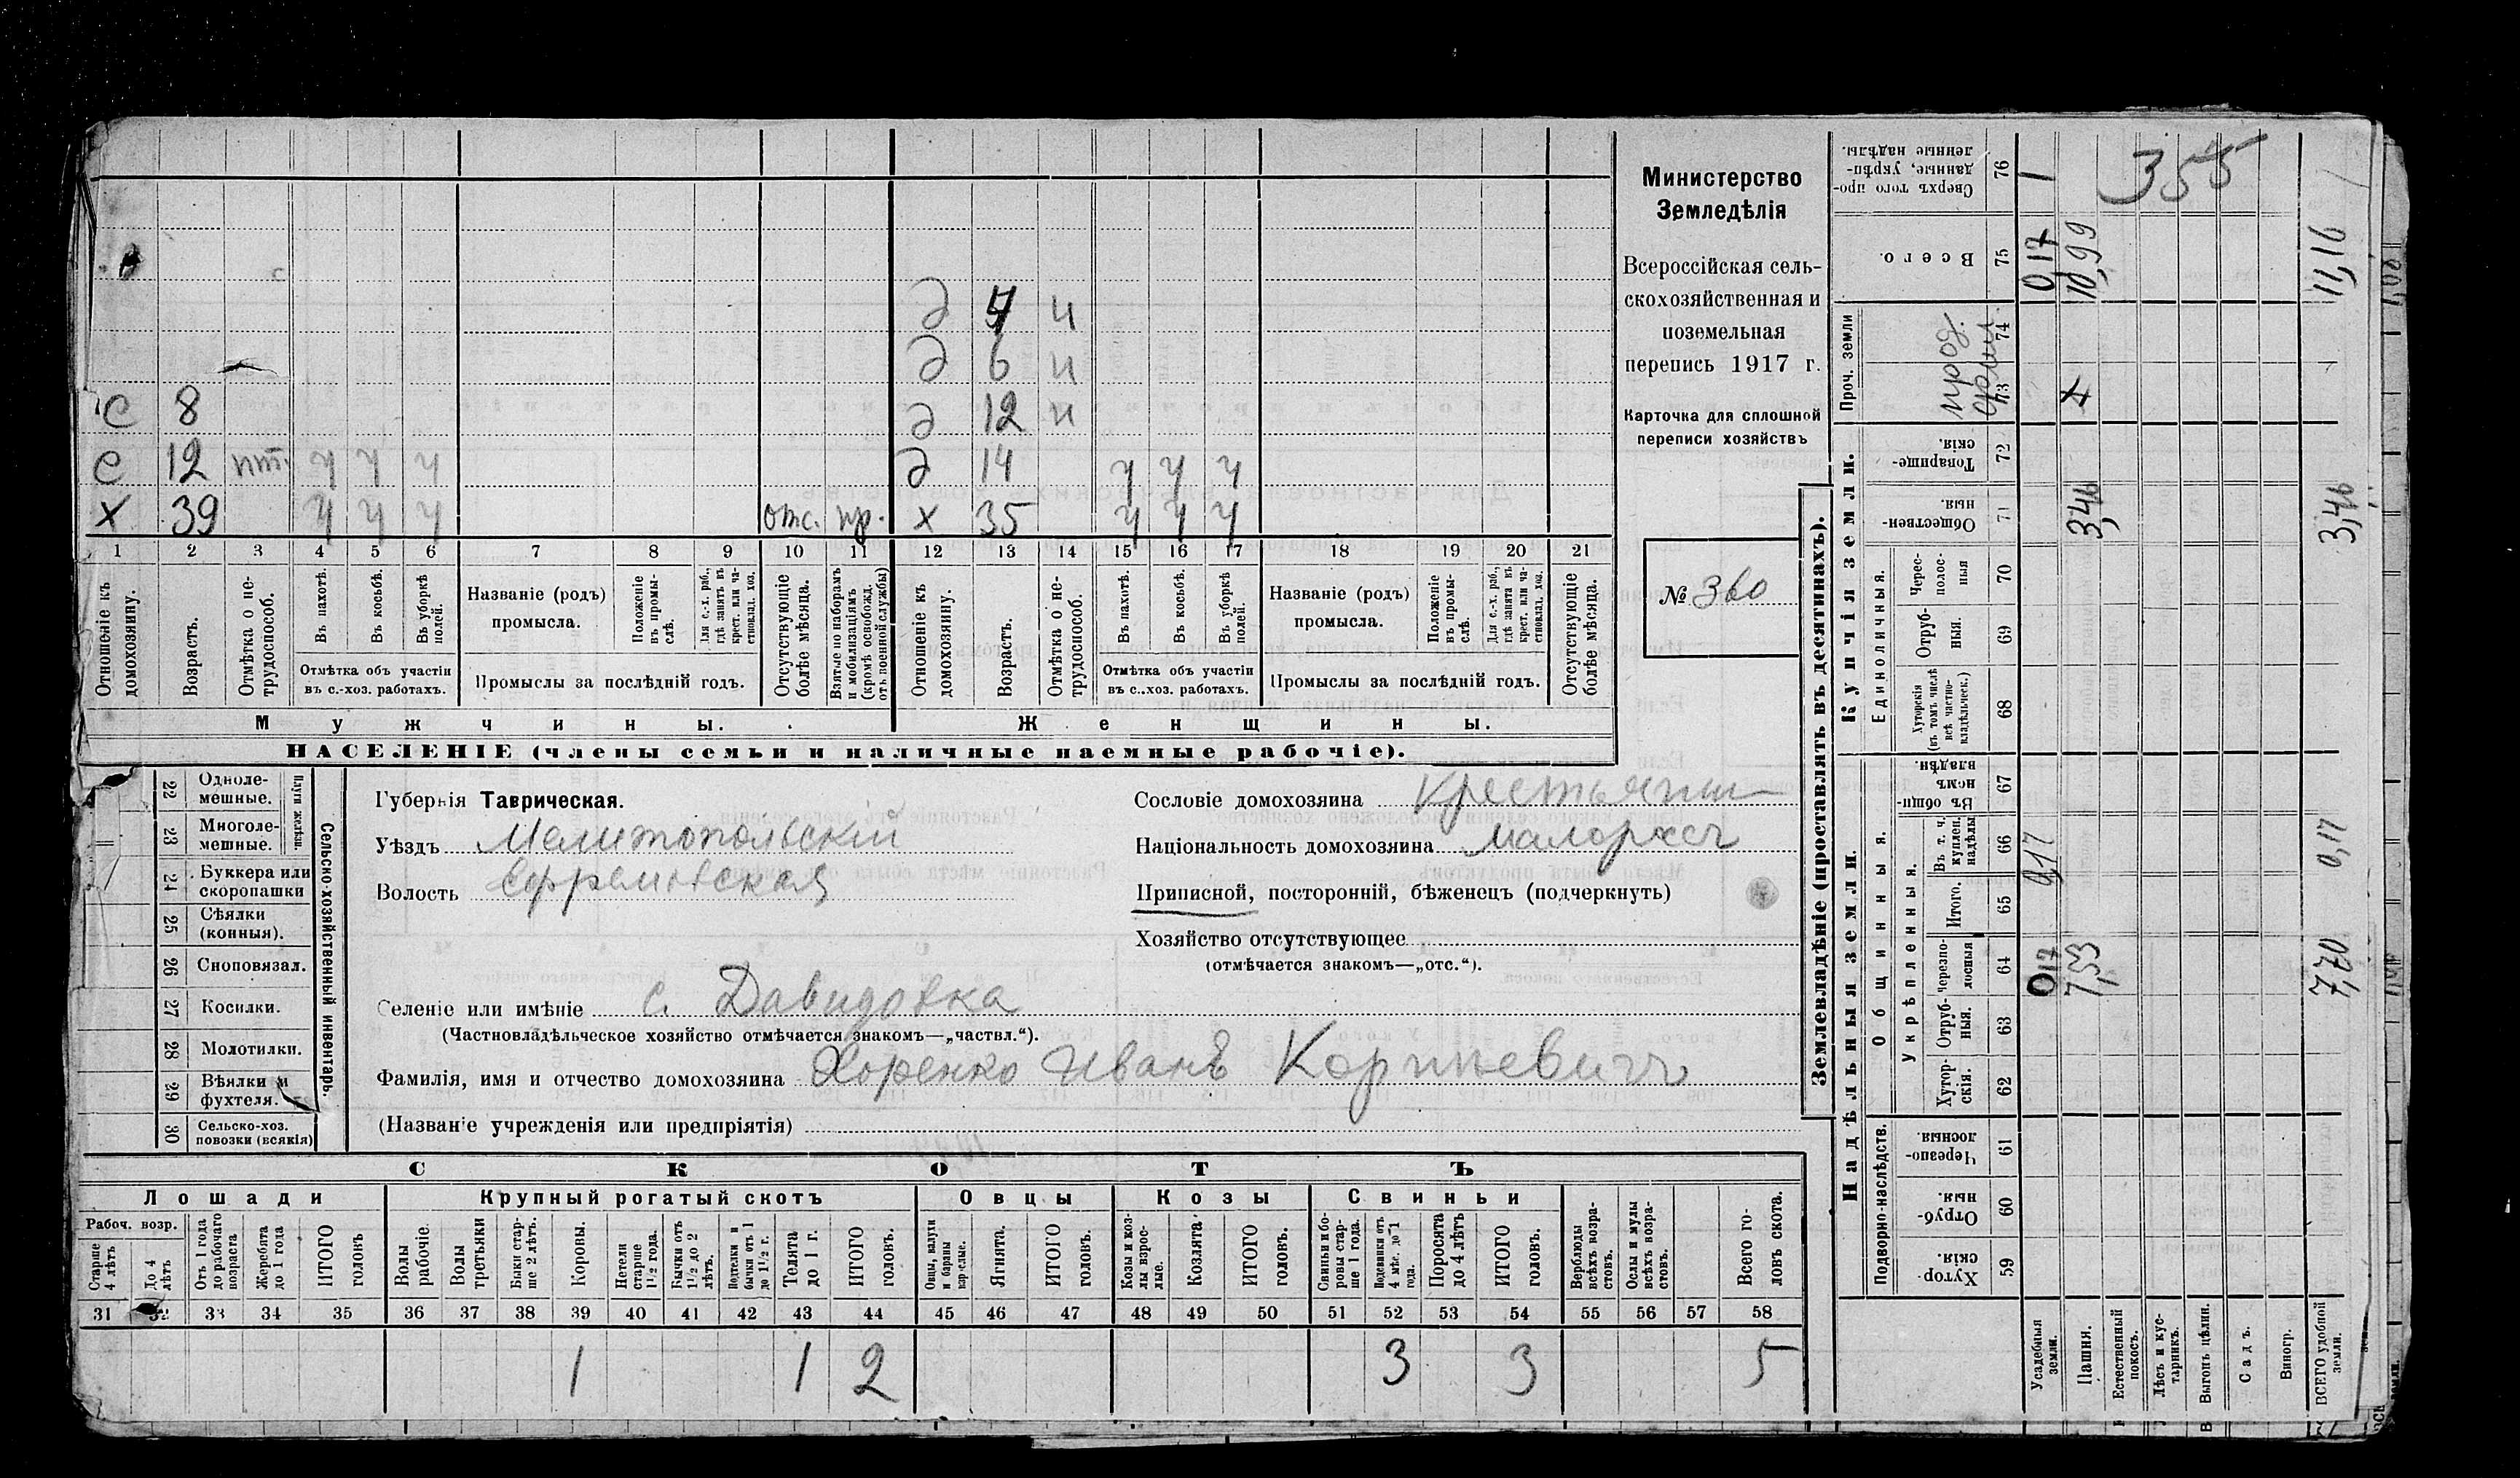 Министерство
Земледѣлія
Всероссійская сель-
скохозяйственная и
поземельная
перепись 1917 г.
Карточка для сплошной
переписи хозяйствъ
№ 360
355
д 4 н
д 6 н
с 8
д 12 н
с 12 ч ч ч
д 14 ч ч ч
х 39 ч ч ч отс. пр.
х 35 ч ч ч
1 2 3 4 5 6 7 8 9 10 11 12 13 14 15 16 17 18 19 20 21
Отношеніе къ домохозяину.
Возрастъ.
Отмѣтка о не-трудоспособ.
Въ пахотѣ.
Въ косьбѣ.
Въ уборкѣ полей.
Отмѣтка объ участіи
въ с.-хоз. работахъ.
Названіе (родъ)
промысла.
Положеніе въ промы-слѣ.
Для с.-х. раб., гдѣ занятъ въ крест. или ча-стновлад. хоз.
Промыслы за послѣдній годъ.
Отсутствующіе болѣе мѣсяца.
Взятые по наборамъ и мобилизаціямъ (кромѣ освобожд. отъ военной службы)
Отношеніе къ домохозяину.
Возрастъ.
Отмѣтка о не-трудоспособ.
Въ пахотѣ.
Въ косьбѣ.
Въ уборкѣ полей.
Отмѣтка объ участіи
въ с.-хоз. работахъ.
Названіе (родъ)
промысла.
Положеніе въ промы-слѣ.
Для с.-х. раб., гдѣ занята въ крест. или ча-стновлад. хоз.
Промыслы за послѣдній годъ.
Отсутствующіе болѣе мѣсяца.
Мужчины.
Женщины.
НАСЕЛЕНІЕ (члены семьи и наличные наемные рабочіе).
Сельско-хозяйственный инвентарь.
Плуги желѣзн.
22 Одноле-мешные.
23 Многоле-мешные.
24 Буккера или скоропашки
25 Сѣялки (конныя).
26 Сноповязал.
27 Косилки.
28 Молотилки.
29 Вѣялки и фухтеля.
30 Сельско-хоз. повозки (всякія)
Губернія Таврическая.
Уѣздъ Мелитопольскій
Волость Ефремовская
Сословіе домохозяина Крестьянин
Національность домохозяина малоросъ
Приписной, посторонній, бѣженецъ (подчеркнуть)
Хозяйство отсутствующее
(отмѣчается знакомъ—„отс.“).
Селеніе или имѣніе с. Давидовка
(Частновладѣльческое хозяйство отмѣчается знакомъ—„частвл.“).
Фамилія, имя и отчество домохозяина Хоренко Иванъ Корнѣевичъ
(Названіе учрежденія или предпріятія)
СКОТЪ
Лошади
Крупный рогатый скотъ
Овцы
Козы
Свиньи
Рабоч. возр.
Старше 4 лѣтъ
До 4 лѣтъ
Отъ 1 года до рабочаго возраста
Жеребята до 1 года
ИТОГО головъ
Волы рабочіе
Волы третьяки
Быки стар-ше 2 лѣтъ.
Коровы.
Нетели старше 1½ года.
Бычки отъ 1½ до 2 лѣтъ.
Подтелки и бычки отъ 1 до 1½ г.
Телята до 1 г.
ИТОГО головъ.
Овцы, валухи и бараны взрослые.
Ягнята.
ИТОГО головъ.
Козы и коз-лы взрос-лые.
Козлята.
ИТОГО головъ.
Свиньи и бо-ровы стар-ше 1 года.
Подсвинки отъ 4 мѣс. до 1 года.
Поросята до 4 лѣтъ
ИТОГО головъ.
Верблюды всѣхъ возра-стовъ.
Ослы и мулы всѣхъ возра-стовъ.
Всего го-ловъ скота.
31 32 33 34 35 36 37 38 39 40 41 42 43 44 45 46 47 48 49 50 51 52 53 54 55 56 57 58
1 1 2 3 3 5
Землевладѣніе (проставлять въ десятинахъ).
Надѣльныя земли.
Купчія земли.
Проч. земли
Подворно-наслѣдств.
Общинныя.
Укрѣпленныя.
Единоличныя.
Хутор-скія. 59
Отруб-ныя. 60
Черезпо-лосныя. 61
Хутор-скія. 62
Отруб-ныя. 63
Черезпо-лосныя 64
Итого. 65
Въ т. ч. куплен. надѣлы 66
Въ общин-номъ владѣн. 67
Хуторскія (въ томъ числѣ всѣ частно-владѣльческ.) 68
Отруб-ныя. 69
Черес-полос-ныя 70
Обществен-ныя 71
Товарище-скія. 72
73
74
Всего. 75
Сверхъ того про-данные, укрѣп-ленные надѣлы. 76
Усадебныя земли.
0,17 0,17 0,17
Пашня.
7,53 3,46 10,99
Естественный покосъ.
Лѣсъ и кус-тарникъ.
Выгонъ цѣлин.
Садъ.
Виногр.
ВСЕГО удобной земли.
7,70 0,17 3,46 11,16